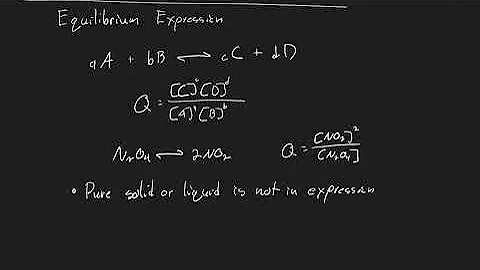 Equilibrium Expression
aA + bB ⟷ cC + dD
Q = [C]^c [D]^d / [A]^a [B]^b
N₂O₄ ⟷ 2NO₂ Q = [NO₂]² / [N₂O₄]
• Pure solid or liquid is not in expression